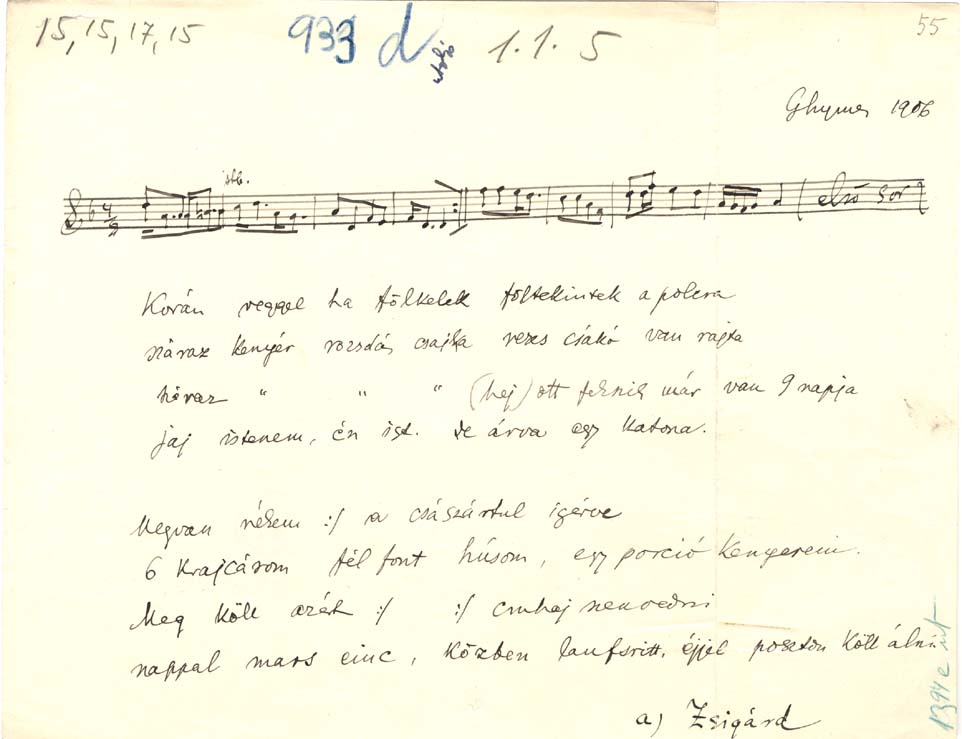 15, 15, 17, 15 933 d 1.1.5 55
Ghymes 1906
stb.
első sor
Korán reggel ha fölkelek föltekintek a polcra
száraz kenyér rozsdás csajka rezes csákó van rajta
száraz " " " (hej) ott fekszik már van 9 napja
jaj istenem, én ist. de árva egy katona.
Megvan nékem :/ a császártul igérve
6 krajcárom fél font húsom, egy porció kenyerem.
Meg köll azért :/ :/ cmhaj
nappal mars einc, közben laufsritt, éjjel poszton köll álni
a) Zsigárd
1394e